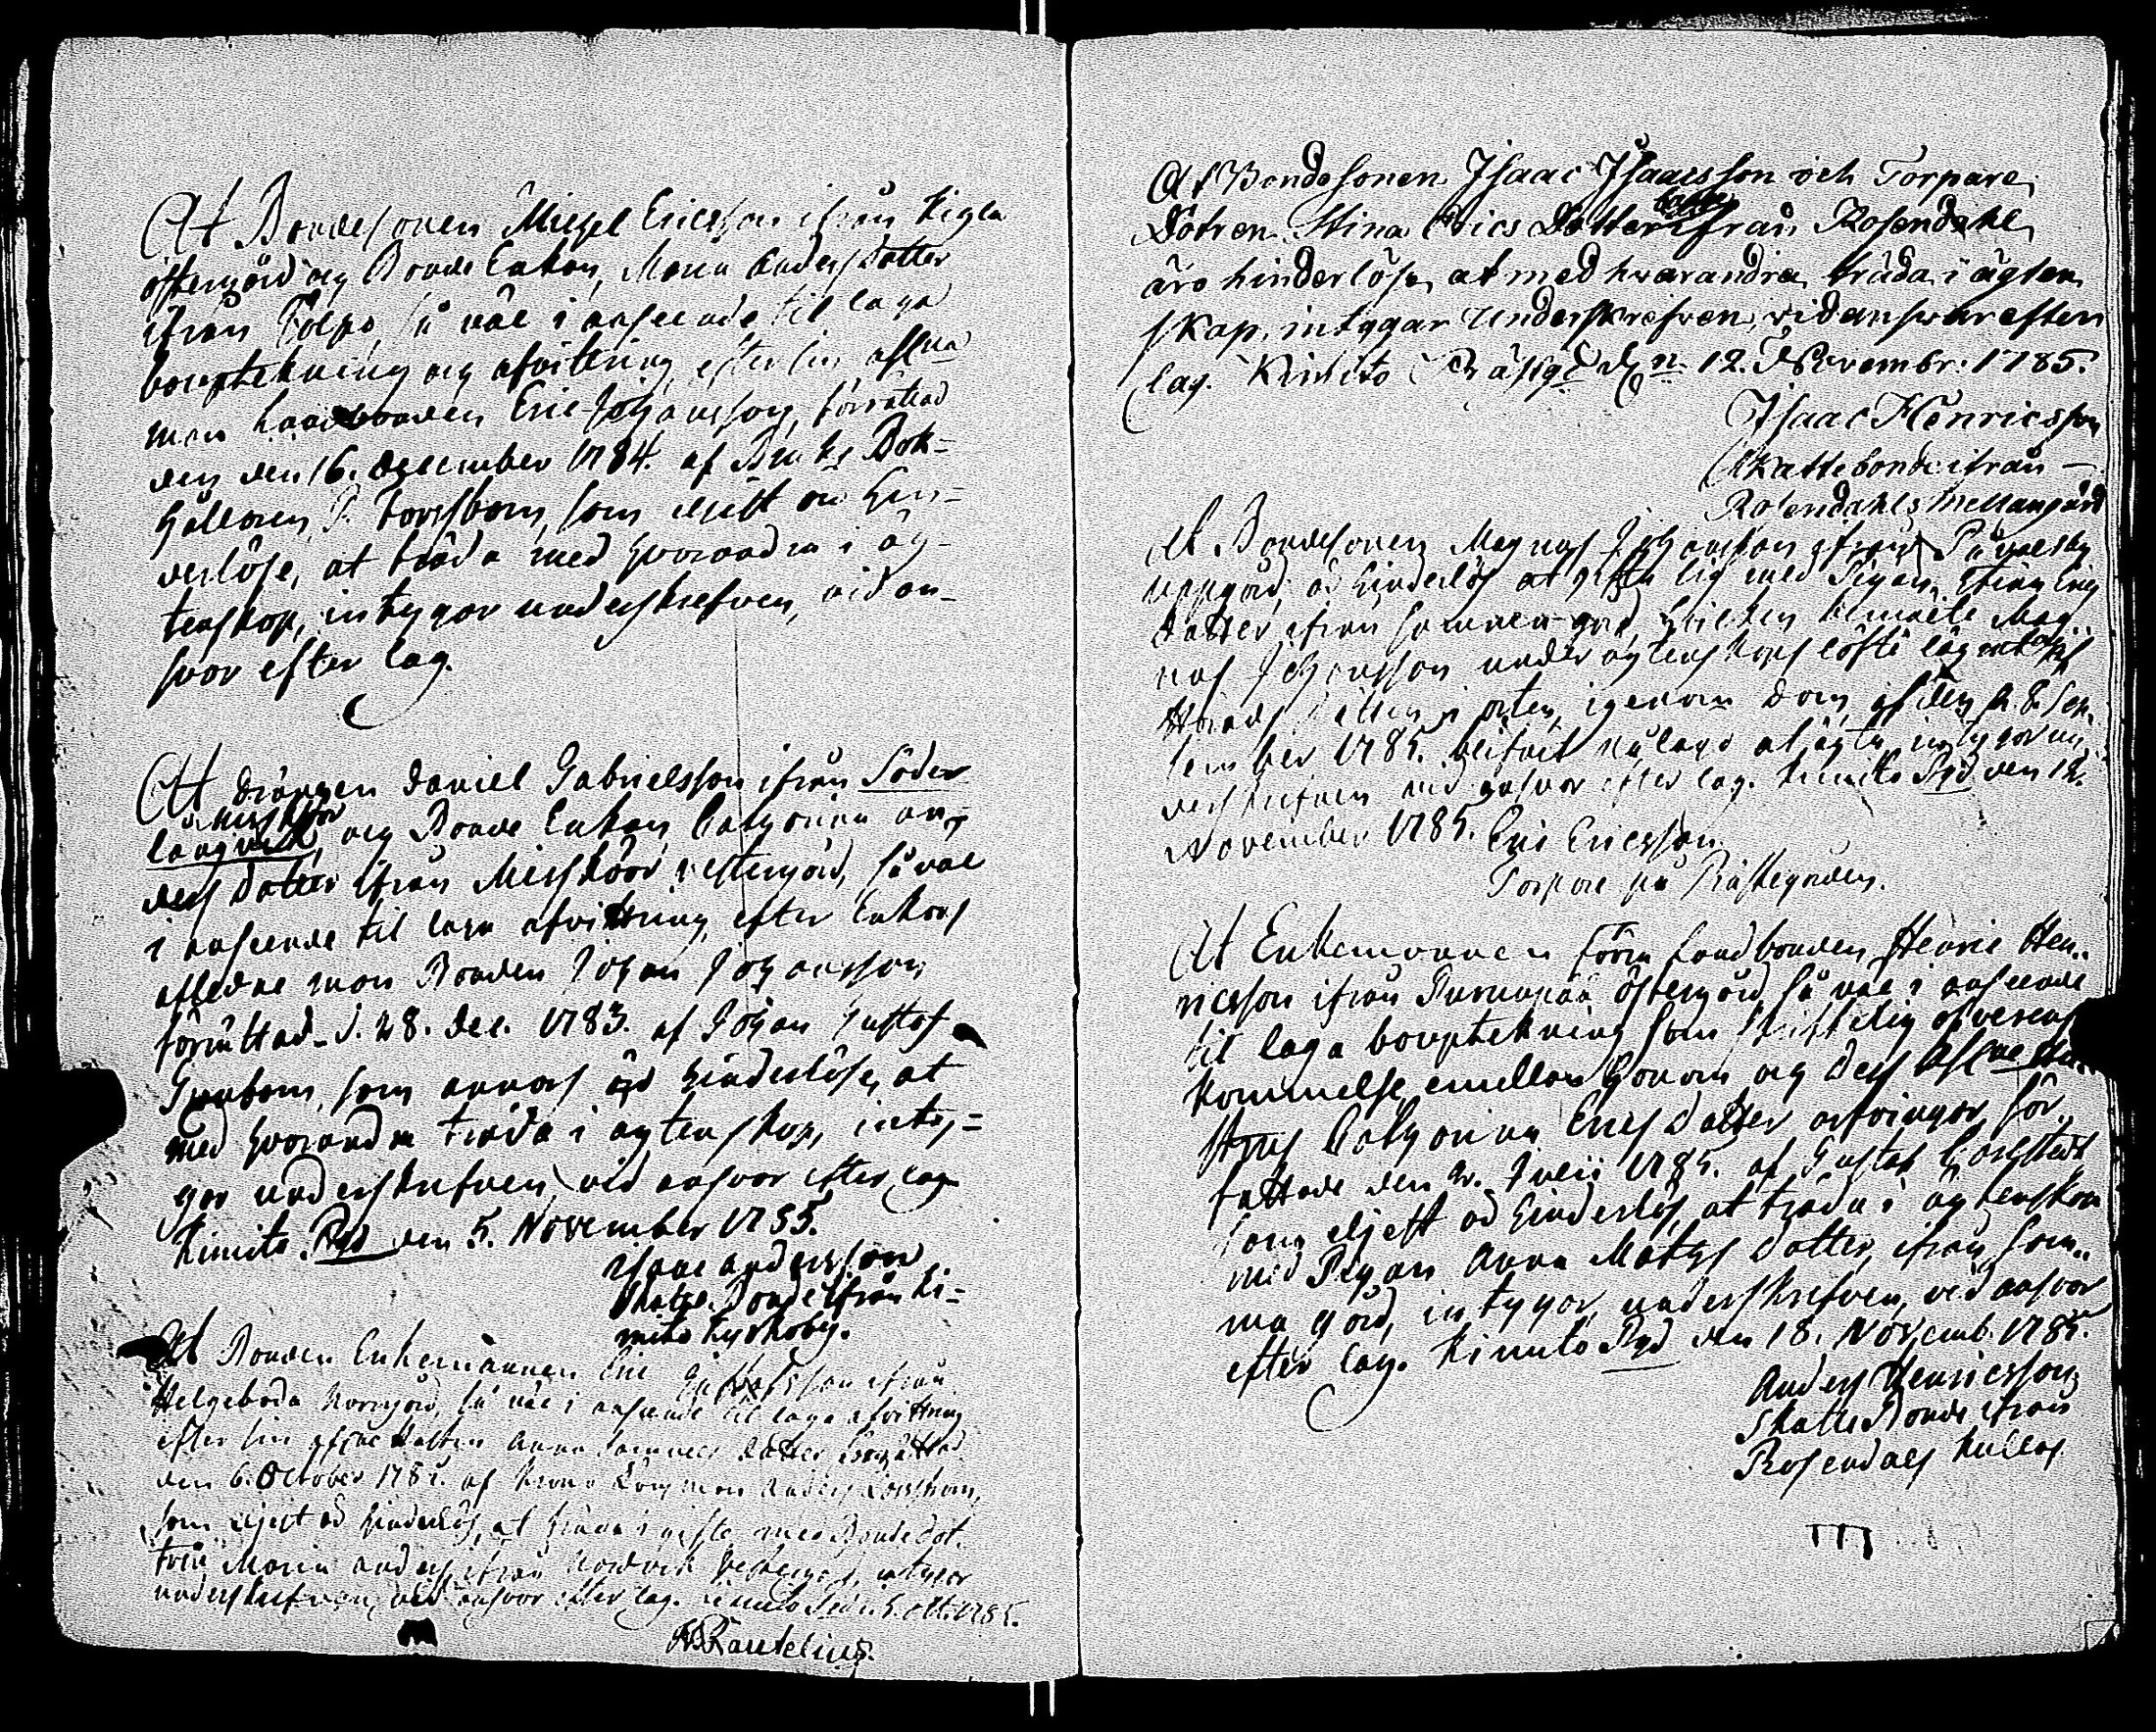 At Bondesonen Michel Ericsson ifrån Tigla
östergård och Bonde Enkan, Maria Andersdotter
ifrån Tolfo, så väl i anseende til laga
bouptekning och afvittring, efter sin aflna
man Landbonden Eric Johansson, förrättad
den den 16. December 1784. af Bruks Bok=
hållaren P. Forsbom, som eljest äro hin=
derlöse, at träda med hvarandra i äg-
tenskap, intygar underskrefven, vid an-
svar efter lag.
At drängen Daniel Gabrielsson ifrån Söder
långvik, och Bonde Enkan Catharina An-
ders dotter ifrån Misskär vestergård, så väl
i anseende til laga afvittring efter Enkans
afledne man Bonden Johan Johansson
förrättad d. 28. Dec. 1783. af Johan Gustaf
Granbom, som annars äro hinderlöse, at
med hvarandra träda i ägtenskap, inty=
gar underskrefven, vid ansvar efter lag
Kimito Pgd den 5. November 1785.
Isaac Andersson
Skatte Bonde ifrån Ki=
mito kyrkoby.
At Bonden Enkemannen Eric Gustafsson ifrån
Helgeboda Norrgård, så väl i anseende til laga afvittring
efter sin aflne Hustru Anna Samuels dotter förrättad
den 6. October 1785. af Krono Länsman Anders
som eljest är hinderlös, at träda i gifte med Bonde dot-
tren Maria Anders ifrån Nordvik Vestergård, intygar
underskrefven, vid ansvar efter lag. Kimito Pgd d. 5. 1785.
At Bondesonen Isaac Isaacsson och Torpare
Dotren Stina Erics Dotter bägge ifrån Rosendahl
äro hinderlöse, at med hvarandra träda i ägten
skap, intygar Underskrefven, vid ansvar efter
lag. Kimito Prästgd d. 12. Novembr: 1785.
Isaac Henricsson
Skattebonde ifrån —
Rosendahls Mellangård
At Bondesonen Magnus Johansson ifrån Påvalsby
uppgård, är hinderlös at gifta sig med Pigan Stina Erics
dotter ifrån samma gård, hvilken bemälte Mag-
nus Johansson under ägtenskaps löfte lägrat
Härads Rätten i orten, igenom dom, af den 28. Sep-
tember 1785. blifvit ålagd at ägta, intygar un-
derskrefven vid ansvar efter lag. Kimito Pgd den 12.
November 1785. Eric Ericsson.
Torpare på Prästegården.
At Enkemannen förra Landbonden Henric Hen-
ricsson ifrån östergård, så väl i anseende
til laga bouptekning som skriftelig öfverens
kommelse emellan honom och dess aflne Hu-
strus Catharina Erics dotter arfvingar för
fattade den 2. Junii 1785. af Gustaf
som eljest är hinderlös, at träda i ägtenskap
med Pigan Anna Matts dotter, ifrån sam-
ma gård, intygar, underskrefven, vid ansvar
efter lag. Kimito Pgd den 18. Novemb. 1785.
Anders Henricsson
Skatte Bonde ifrån
Rosendals Kullas